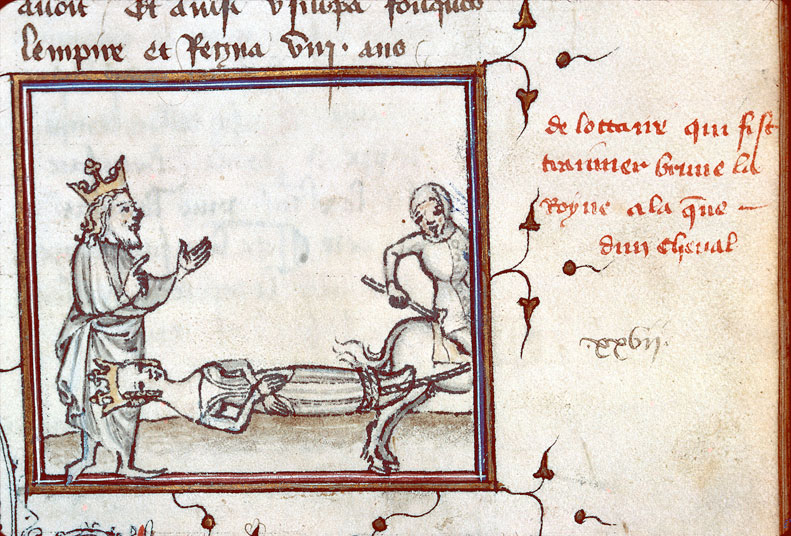 avoit Et ainsi usurpa fouques
lempire et Regna viii. ans
de lottaire qui fist
trainner brune la
Royne a la q̄ue
dun cheval
.xxvii.